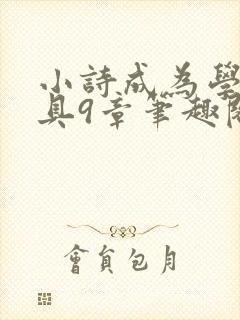 小詩成為學
具9章筆趣閱
會員包月